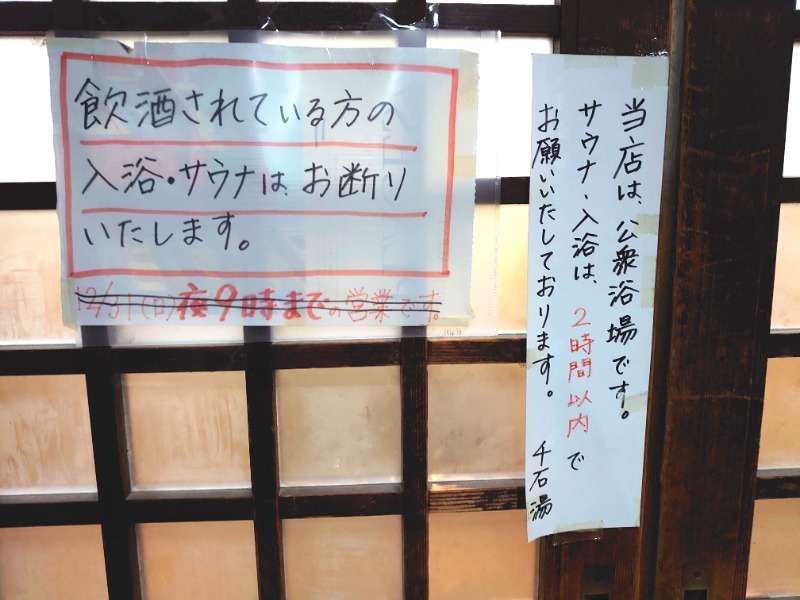 飲酒されている方の
入浴・サウナは、お断り
いたします。
12/31(日)夜9時までの営業です。
当店は、公衆浴場です。
サウナ、入浴は、2時間以内で
お願いいたしております。 千石湯